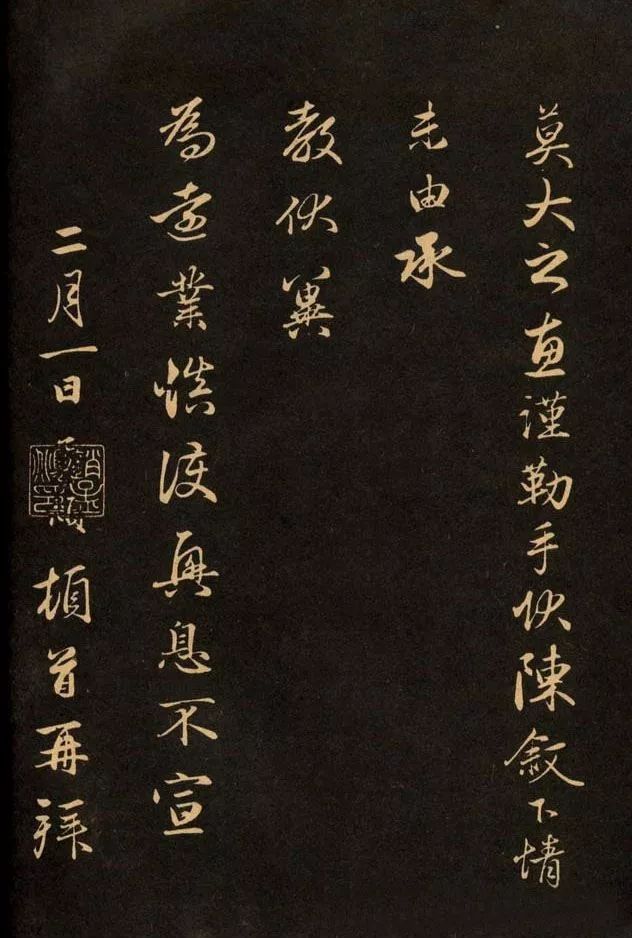 莫大之惠謹勒手狀陳敘下情
未由承
教伏冀
為遠業慎護興息不宣
二月一日頓首再拜